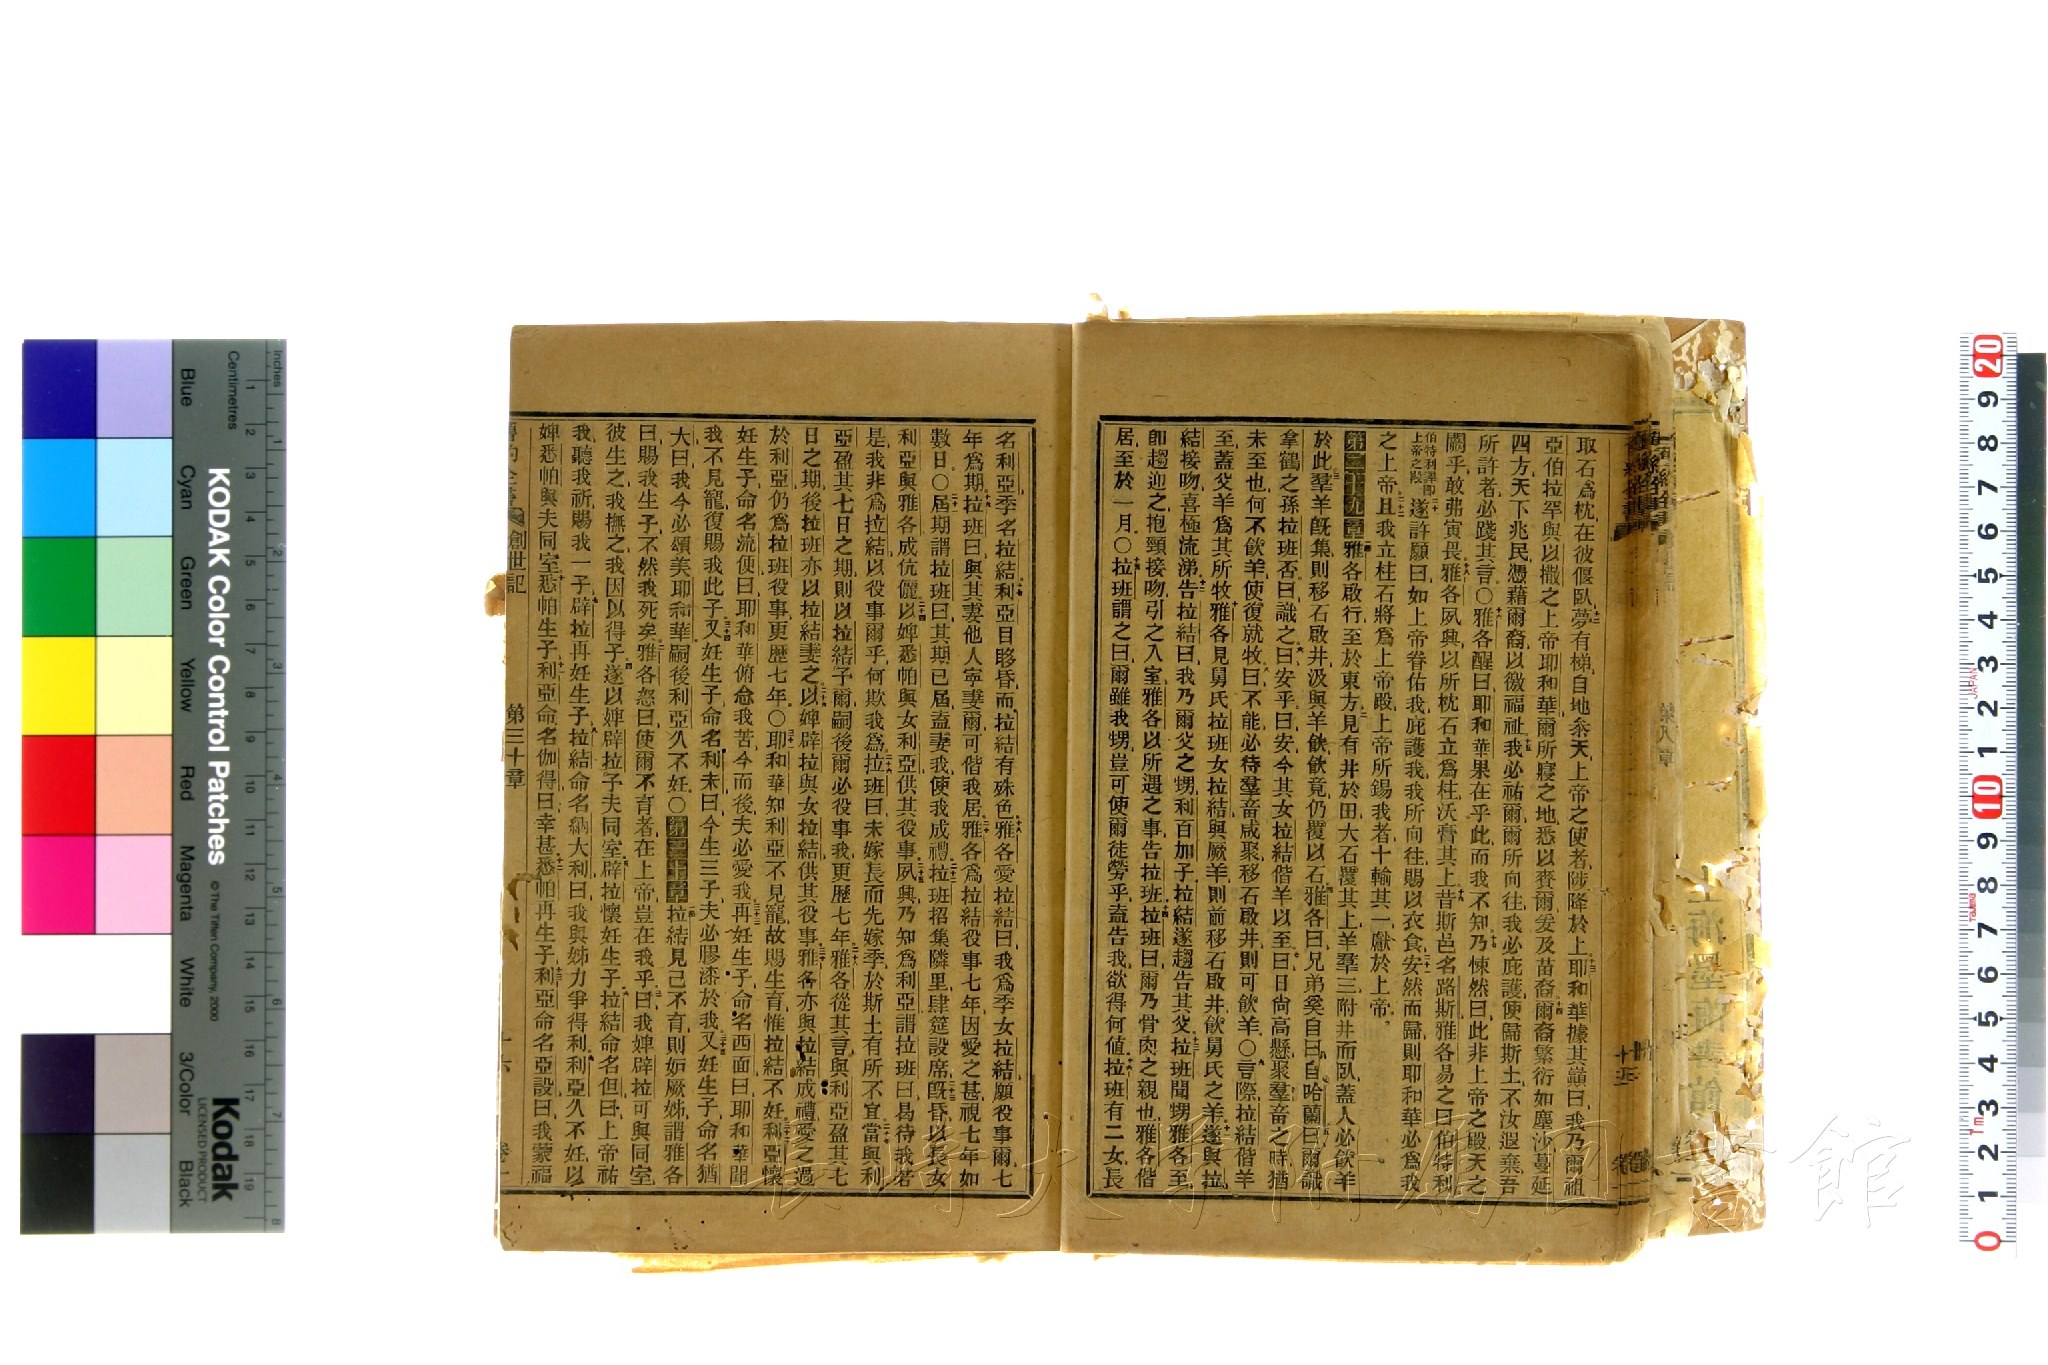 取石爲枕在彼偃臥夢有梯自地參天上帝之使者陟降於上耶和華據其巔曰我乃爾祖
亞伯拉罕與以撒之上帝耶和華爾所寢之地悉以賚爾爰及苗裔爾裔繁衍如塵沙蔓延
四方天下兆民憑藉爾裔以徼福祉我必祐爾爾所向往我必庇護使歸斯土不汝遐棄吾
所許者必踐其言○雅各醒曰耶和華果在乎此而我不知乃悚然曰此非上帝之殿天之
闕乎敢弗寅畏雅各夙興以所枕石立爲柱沃膏其上昔斯邑名路斯雅各易之曰伯特利
伯特利譯即上帝之殿遂許願曰如上帝眷佑我庇護我我所向往賜以衣食安然而歸則耶和華必爲我
之上帝且我立柱石將爲上帝殿上帝所錫我者十輸其一獻於上帝
第二十九章雅各啟行至於東方見有井於田大石覆其上羊羣三附井而臥蓋人必飲羊
於此羣羊旣集則移石啟井汲與羊飲飲竟仍覆以石雅各曰兄弟奚自曰自哈蘭曰爾識
拿鶴之孫拉班否曰識之曰安乎曰安今其女拉結偕羊以至曰日尙高懸聚羣畜之時猶
未至也何不飲羊使復就牧曰不能必待羣畜咸聚移石啟井則可飲羊○言際拉結偕羊
至蓋父羊爲其所牧雅各見舅氏拉班女拉結與厥羊則前移石啟井飲舅氏之羊遂與拉
結接吻喜極流涕告拉結曰我乃爾父之甥利百加子拉結遂趨告其父拉班聞甥雅各至
卽趨迎之抱頸接吻引之入室雅各以所遇之事告拉班拉班曰爾乃骨肉之親也雅各偕
居至於一月○拉班謂之曰爾雖我甥豈可使爾徒勞乎盍告我欲得何値拉班有二女長
名利亞季名拉結利亞目眵昏而拉結有姝色雅各愛拉結曰我爲季女拉結願役事爾七
年爲期拉班曰與其妻他人寧妻爾可偕我居雅各爲拉結役事七年因愛之甚視七年如
數日○屆期謂拉班曰其期已屆盍妻我使我成禮拉班招集隣里肆筵設席旣昏以長女
利亞與雅各成伉儷以婢悉帕與女利亞供其役事夙興乃知爲利亞謂拉班曰曷待我若
是我非爲拉結以役事爾乎何欺我爲拉班曰未嫁長而先嫁季於斯土有所不宜當與利
亞盈其七日之期則以拉結予爾嗣後爾必役事我更歷七年雅各從其言與利亞盈其七
日之期後拉班亦以拉結妻之以婢辟拉與女拉結供其役事雅各亦與拉結成禮愛之過
於利亞仍爲拉班役事更歷七年○耶和華知利亞不見寵故賜生育惟拉結不妊利亞懷
妊生子命名流便曰耶和華俯念我苦今而後夫必愛我再妊生子命名西面曰耶和華聞
我不見寵復賜我此子又妊生子命名利未曰今生三子夫必膠漆於我又妊生子命名猶
大曰我今必頌美耶和華嗣後利亞久不妊○第三十章拉結見己不育則妬厥姊謂雅各
曰賜我生子不然我死矣雅各怒曰使爾不育者在上帝豈在我乎曰我婢辟拉可與同室
彼生之我撫之我因以得子遂以婢辟拉予夫同室辟拉懷妊生子拉結命名但曰上帝祐
我聽我祈賜我一子辟拉再妊生子拉結命名納大利曰我與姊力爭得利利亞久不妊以
婢悉帕與夫同室悉帕生子利亞命名伽得曰幸甚悉帕再生子利亞命名亞設曰我蒙福
創世記 第三十章
長崎大学附属図書館
KODAK Color Control Patches
© The Tiffen Company, 2000
Kodak
LICENSED PRODUCT
Inches
Centimetres
Blue
Cyan
Green
Yellow
Red
Magenta
White
3/Color
Black